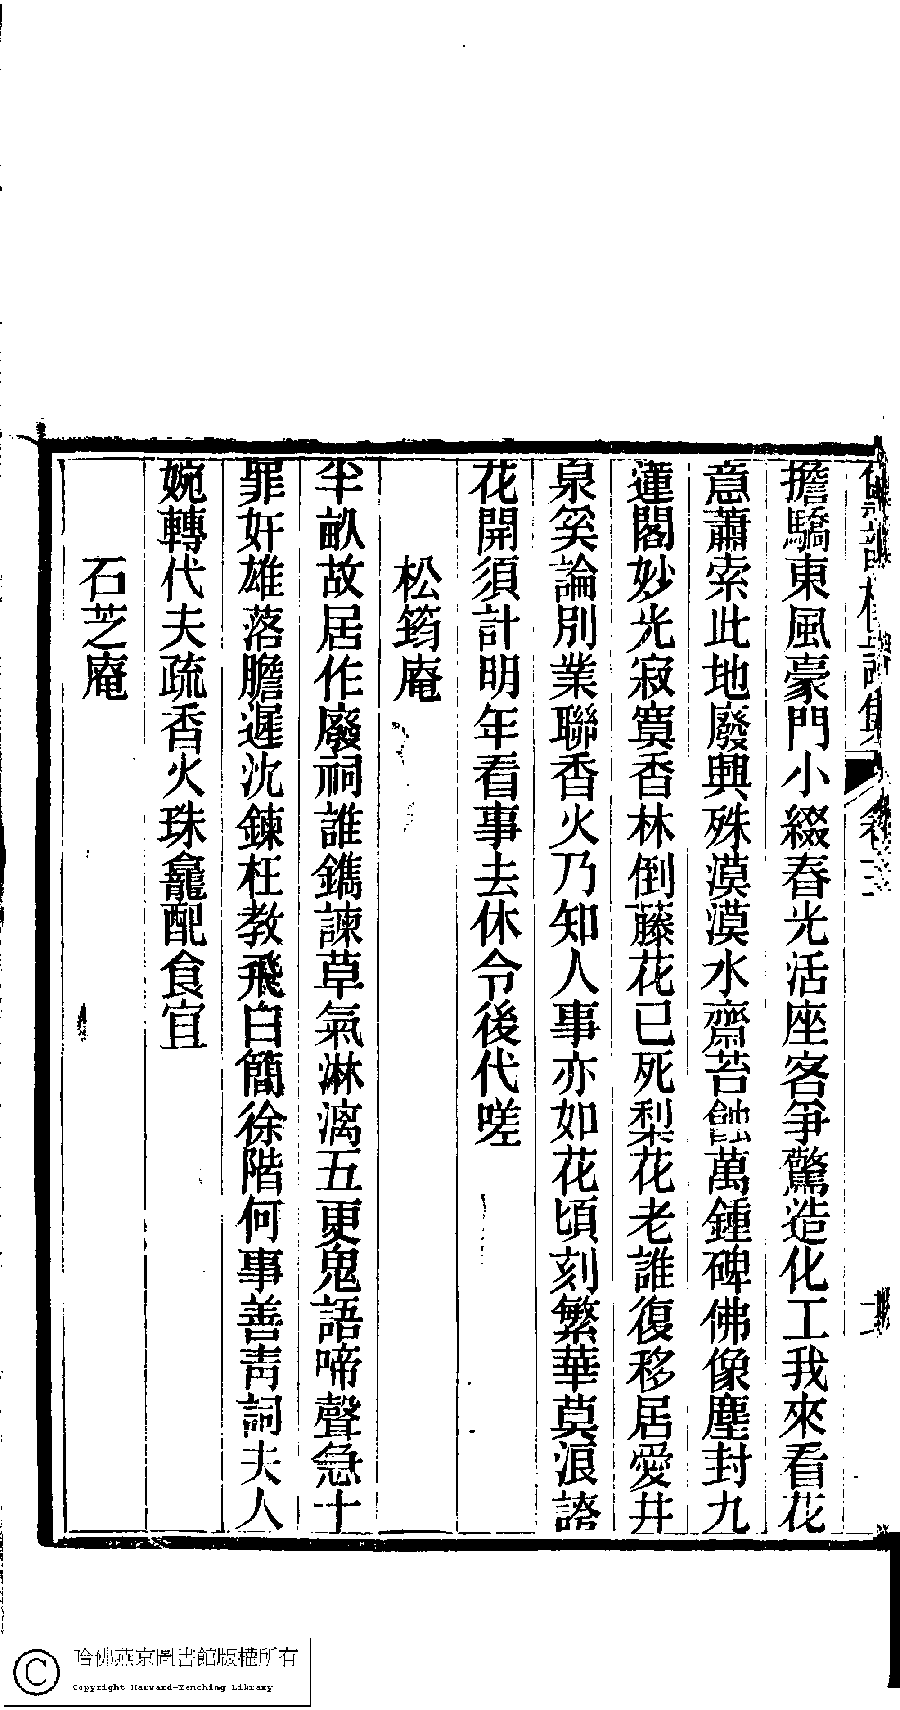 擔驕東風豪門小綴春光活座客爭驚造化工我來看花
意蕭索此地廢興殊漠漠水齋苔蝕萬鍾碑佛像塵封九
蓮閣妙光寂寞香林倒藤花已死梨花老誰復移居愛井
泉奚論別業聯香火乃知人事亦如花頃刻繁華莫浪誇
花開須計明年看事去休令後代嗟
松筠庵
半畝故居作廢祠誰鐫諫草氣淋漓五更鬼語啼聲急十
罪奸雄落膽遲沈鍊枉教飛白簡徐階何事善青詞夫人
婉轉代夫疏香火珠龕配食宜
石芝庵
哈佛燕京圖書館版權所有
Copyright Harvard-Yenching Library